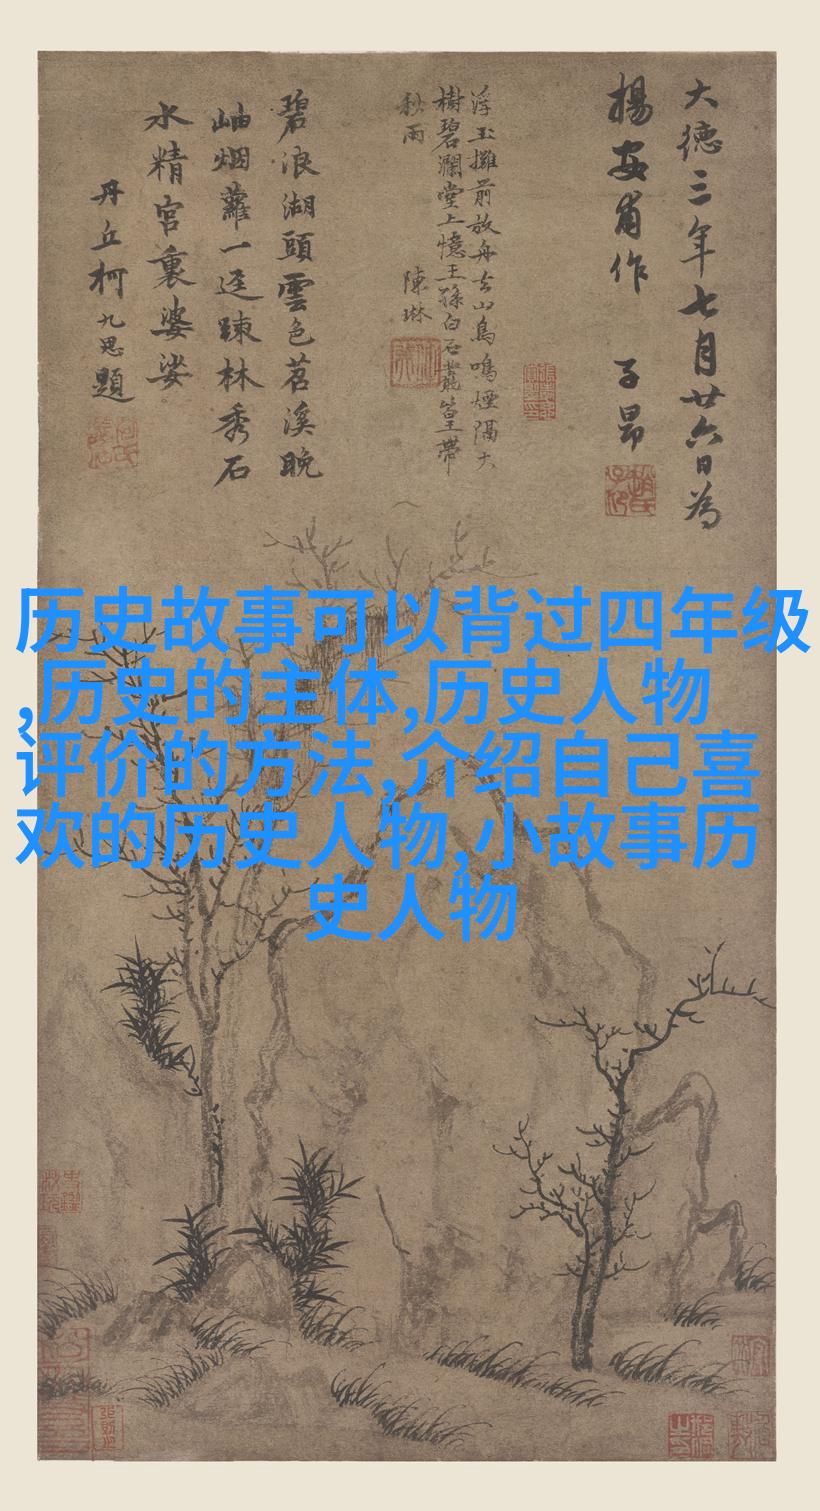 大德三年七月廿六日為
楊安甫作 子昂
浮玉攤前放舟去山鳥鳴煙隔大
樹碧瀾堂上憶王孫白石叢篁帶
秋雨 陳琳
碧浪湖頭雲色苕溪晚
岫烟蘿一逕踈林秀石
水精宮裏婆娑
丹丘柯九思題
历史故事可以背过四年级
,历史的主体,历史人物
评价的方法,介绍自己喜
欢的历史人物,小故事历
史人物